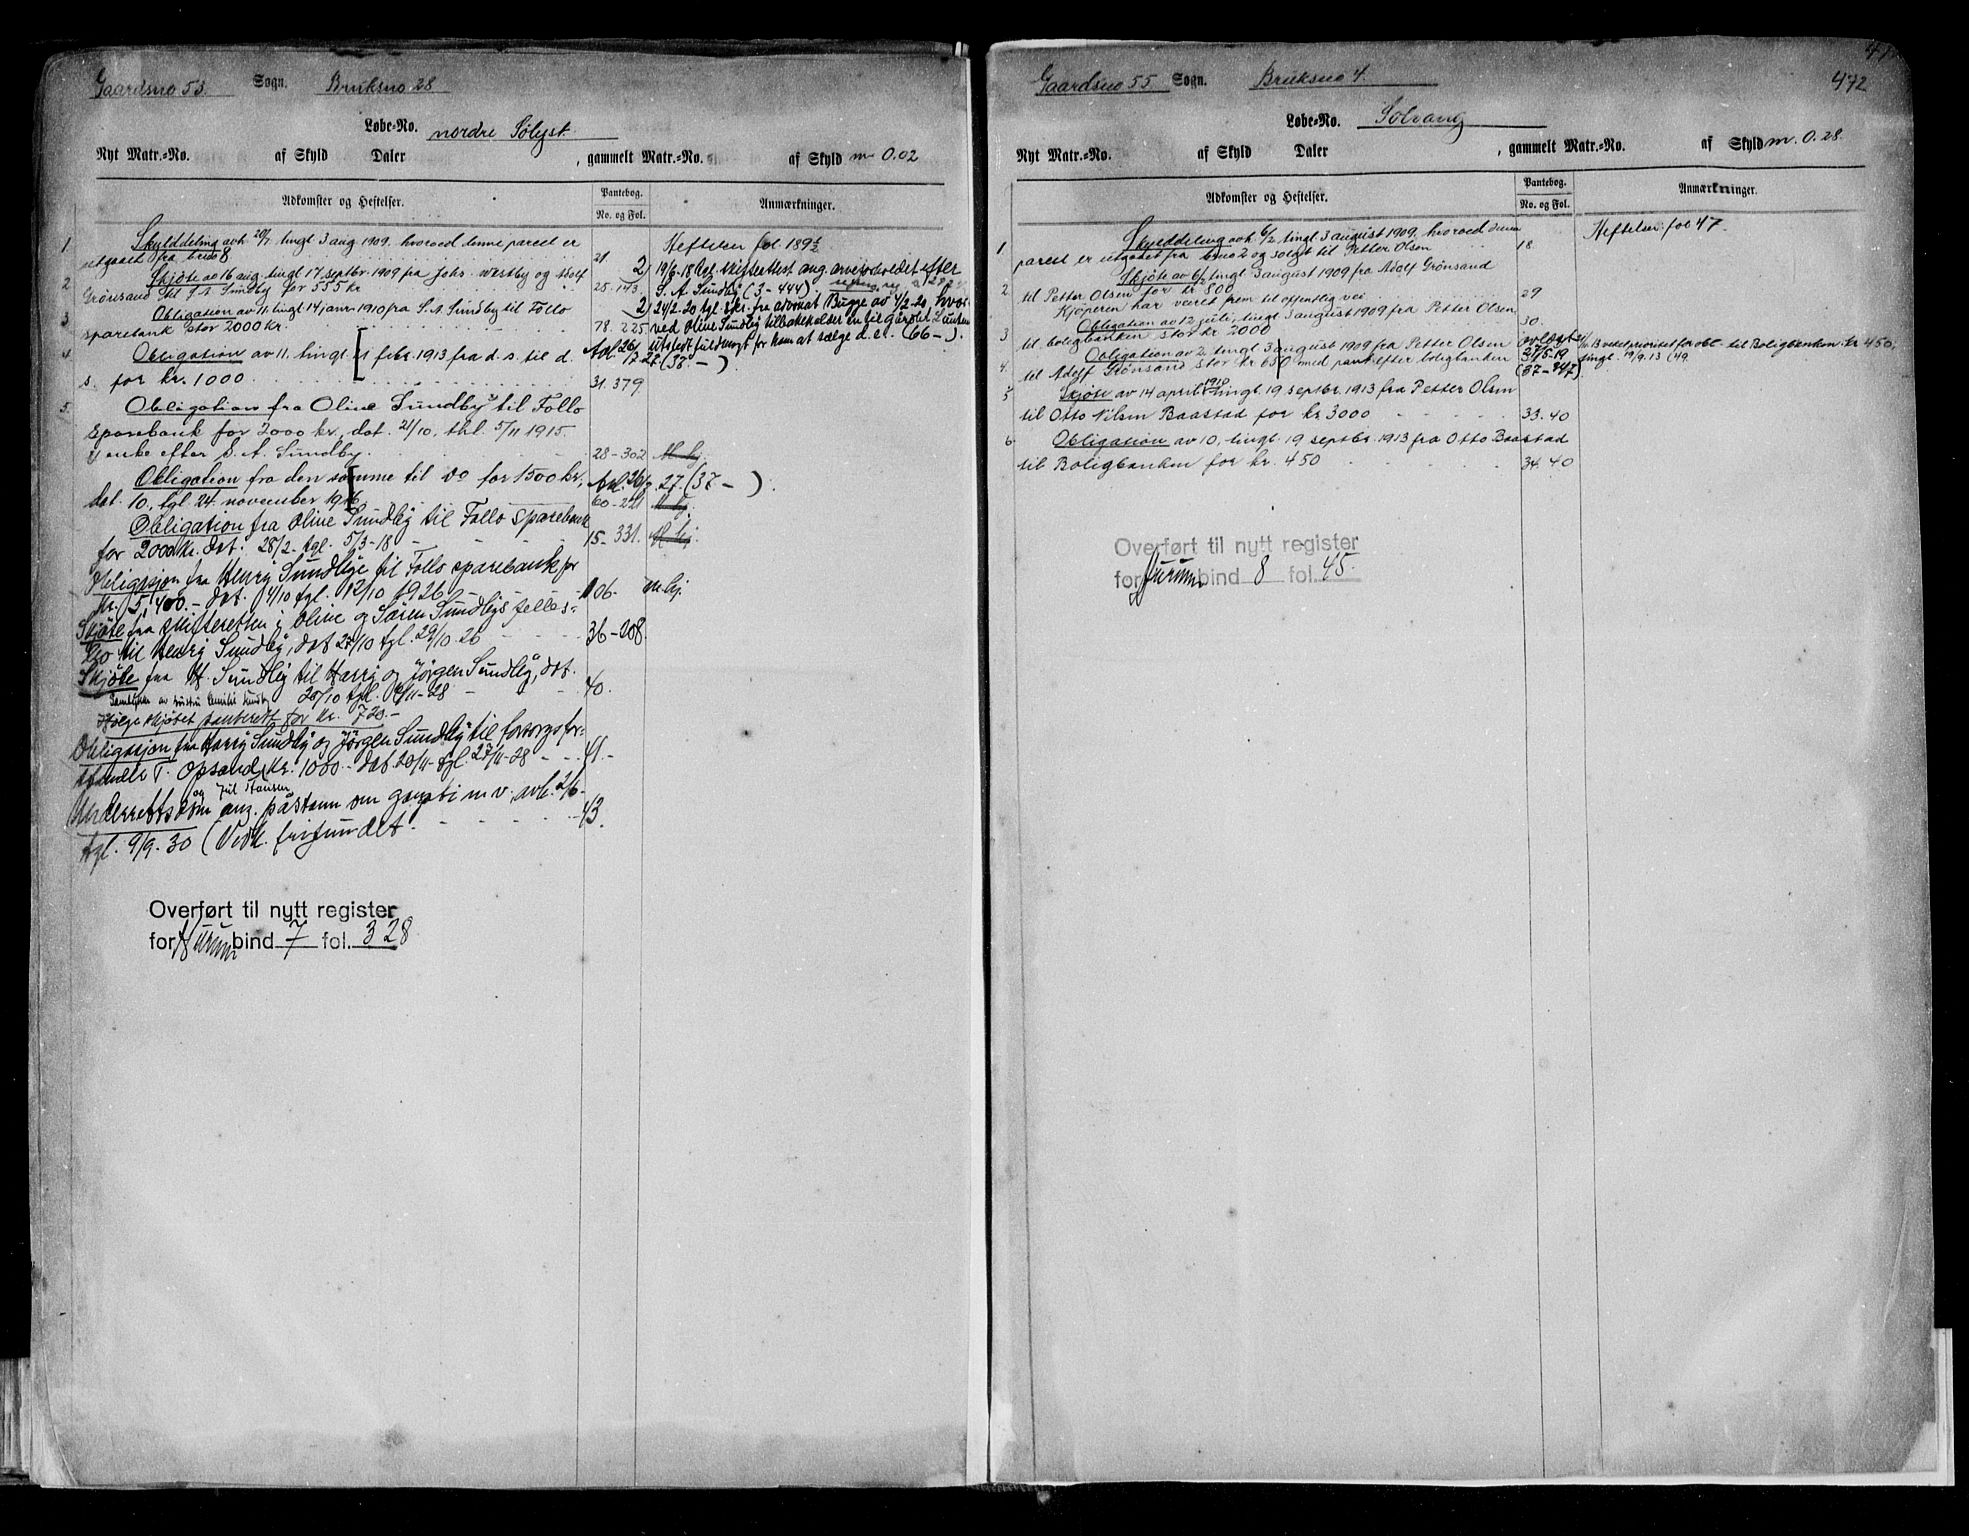 Gaardsno 53. Sogn. Bruksno 28
Løbe-No. nordre Sølyst.
Nyt Matr.-No. af Skyld Daler , gammelt Matr.-No. af Skyld m 0.02
Adkomster og Heftelser.
Pantebog.
No. og Fol.
Anmærkninger.
1. Skylddeling avh. 20/7, tingl 3 aug 1909. hvorved denne parcel er
utgaaet fra brno 8 21
Heftelser fol 189
2 Skjøte av 16 aug. tingl 17 septbr 1909 fra Johs. Westby og Adolf
Grønsand til S. A. Sundby for 555 kr 25. 143.
2) 19/6-18 tgl. skifteattest ang. arveforholdet efter
S. A. Sundby (3-444)
3. Obligation av 11, tingl 14 janr 1910 fra S. A. Sundby til Follo
sparebank stor 2000 kr. 78. 225.
2) 24/2-20 tgl. erkl. fra advokat Bugge av 4/2-20, hvor
ved Oline Sundby tilbakekalder en til
utstedt fuldmagt for ham at sælge d. e. (66- ).
4. Obligation av 11, tingl. 21 febr. 1913 fra d. s. til d.
s. for kr. 1000 31. 379
Avl. 26/
(38.- )
5. Obligation fra Oline Sundby til Follo
sparebank for 2000 kr, dat. 21/10, thl. 5/11 1915.
enke efter S. A. Sundby. 28-302
Obligation fra den samme til do for 1500 kr,
dat. 10., tgl. 24. november 1916. 60-221
Avl. 26/ 27. (37- ).
Obligation fra Oline Sundby til Follo sparebank
for 2000 kr. dat. 28/2- tgl. 5/3-18 - 15-331.
Obligasjon fra Henry Sundbye til Follo sparebank for
kr. 5,400.- dat. 4/10 tgl. 12/10 1926 - 106- m.hj.
Skjøte fra skifteretten i Oline og Søren Sundbys felles-
bo til Henry Sundby, dat 27/10 tgl. 29/10-26 36-208.
Skjøte fra H. Sundby til Harry og Jørgen Sundby, dat.
20/10 tgl. 6/11-28 - 40.
Ifølge skjøtet panterett for kr. 720.-
Obligasjon fra Harry Sundby og Jørgen Sundby til forsorgsfor-
stander T. Opsand kr. 1000.- dat 20/11- tgl. 27/11-28 - 41.-
og Jul Hansen
Underrettsdom ang. påstann om garanti m v, avh. 2/6-
tgl. 9/9-30 (Vedk. frifundet. 43.
Overført til nytt register
for Hurum bind 7 fol. 328
472
Gaardsno 55 Sogn. Bruksno 4.
Løbe-No. Solvang
Nyt Matr.-No. af Skyld Daler , gammelt Matr.-No. af Skyld m. 0.28.
Adkomster og Heftelser.
Pantebog.
No. og Fol.
Anmærkninger.
1 Skylddeling avh. 6/2 tingl 3 august 1909, hvorved denne
parcel er utgaaet fra brno 2 og solgt til Petter Olsen 18.
Heftelser fol 47.
2. Skjøte av 6/2, tingl 3 august 1909 fra Adolf Grønsand
til Petter Olsen for kr 800 29
Kjøperen har veiret frem til offentlig vei
3 Obligation av 12 juli, tingl 3 august 1909 fra Petter Olsen
til boligbanken stor kr 2000 30.
4. Obligation av 2. tingl 3 august 1909 fra Petter Olsen
til Adolf Grønsand stor kr 650 med pant efter boligbanken
avlyst
27/5-19
(37-447)
veket prioritet for obl. til Boligbanken kr 450,
tingl. 19/9.13 (49.
5 Skjøte av 14 april 1910 tingl. 19 septbr. 1913 fra Petter Olsen
til Otto Nilsen Baastad for kr 3000 33. 40
6 Obligation av 10, tingl. 19 septbr. 1913 fra Otto Baastad
til Boligbanken for kr. 450 34. 40
Overført til nytt register
for Hurum bind 8 fol. 45.